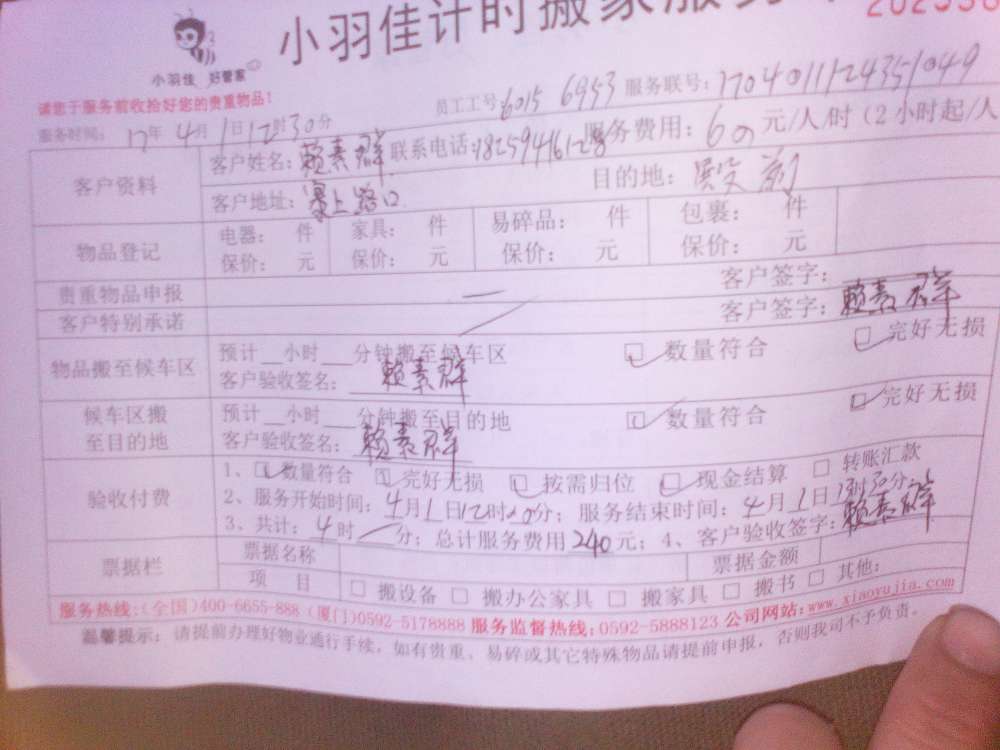 小羽佳计时搬家服务
小羽佳 好管家
请您于服务前收拾好您的贵重物品！
员工工号：6015 6953 服务联号：
服务时间：17年4月1日12时30分
服务费用：60元/人/时（2小时起/人
客户资料 客户姓名：赖素群 联系电话：
客户地址： 路口 目的地：
物品登记 电器： 件 家具： 件 易碎品： 件 包裹： 件
保价： 元 保价： 元 保价： 元 保价： 元
贵重物品申报 — 客户签字：
客户特别承诺 客户签字：赖素群
物品搬至候车区 预计__小时__分钟搬至候车区 □ 数量符合 □ 完好无损
客户验收签名：赖素群
候车区搬至目的地 预计__小时__分钟搬至目的地 □ 数量符合 □ 完好无损
客户验收签名：赖素群
验收付费 1、□ 数量符合 □ 完好无损 □ 按需归位 □ 现金结算 □ 转账汇款
2、服务开始时间：4月1日12时 分；服务结束时间：4月1日 时30分；
3、共计：4时 分；总计服务费用240元；4、客户验收签字：赖素群
票据栏 票据名称 票据金额
项 目 □ 搬设备 □ 搬办公家具 □ 搬家具 □ 搬书 □ 其他：
服务热线：(全国)400-6655-888 (厦门)0592-5178888 服务监督热线：0592-5888123 公司网站：www.xiaoyujia.com
温馨提示： 请提前办理好物业通行手续，如有贵重、易碎或其它特殊物品请提前申报，否则我司不予负责。